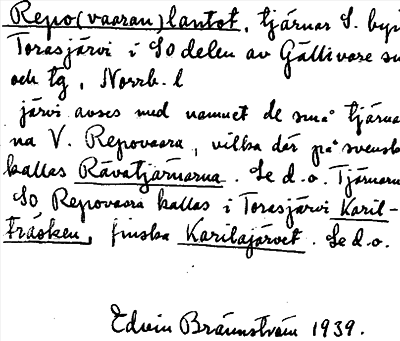 Repo(vaaran)lantot, tjärnar S. byn
Torasjärvi i SO delen av Gällivare sn
och tg, Norrb. l
järvi avses med namnet de små tjärnar
na V. Repovaara, vilka där på svenska
kallas Rävatjärnarna. Se d.o. Tjärnarna
SO Repovaara kallas i Torasjärvi Karil-
träsken, finska Karilajärvet. Se d.o.
Edvin Brännström 1939.